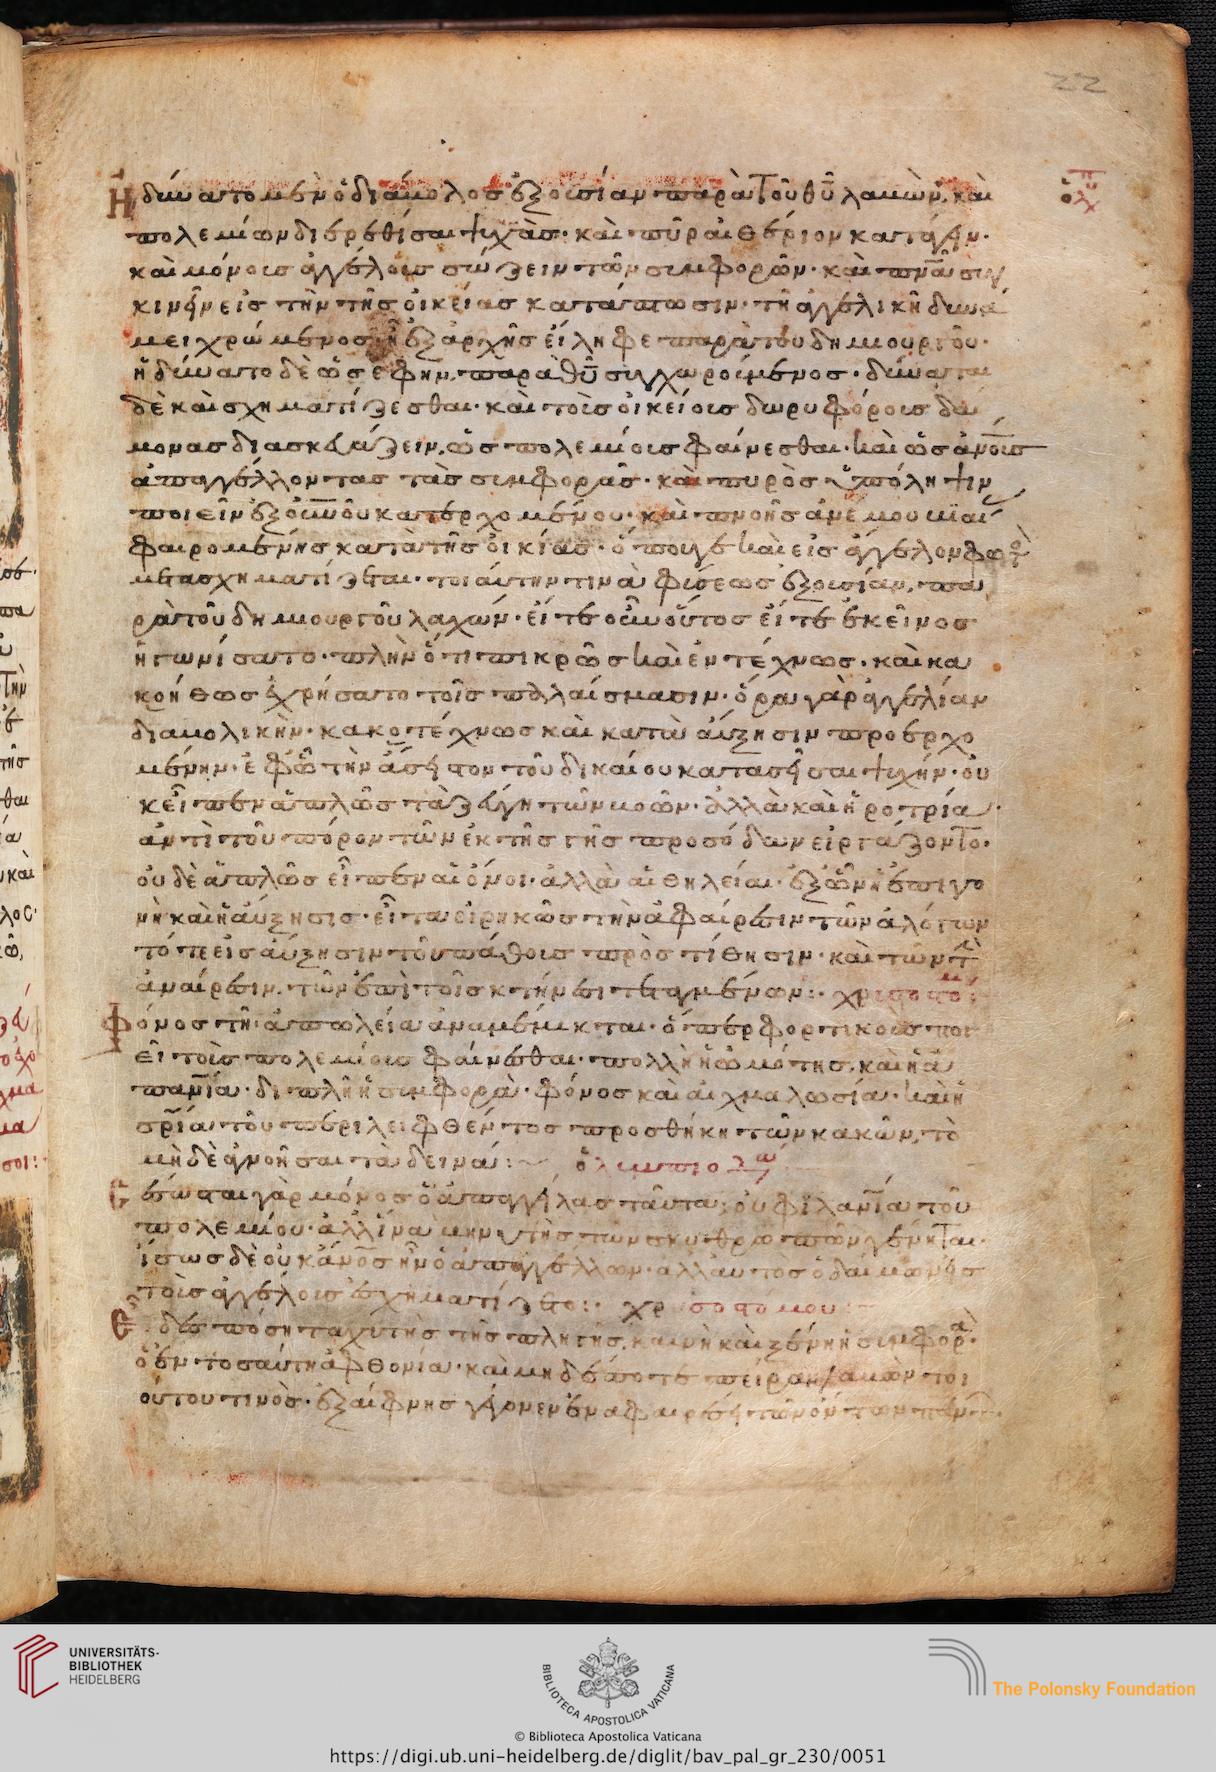 22
Ἠδύνατο μὲν ὁ διάβολος ἐξουσίαν παρὰ τοῦ θῦ λαβὼν, καὶ
πολεμίων διερεθίσαι ψυχὰς· καὶ πῦρ αἰθέριον καταγαγεῖν·
καὶ μόνους ἀγγέλους σώζειν τῶν συμφορῶν· καὶ πνα συγ
κινεῖν εἰς τὴν τῆς οἰκείας κατάπτωσιν· τῇ ἀγγελικῇ δυνά
μει χρώμενος ἣν ἐξ ἀρχῆς εἴληφε παρὰ τοῦ δημιουργοῦ·
ἠδύνατο δὲ ὡς ἔφην, παρὰ θῦ συγχωρούμενος· δύναται
δὲ καὶ σχηματίζεσθαι· καὶ τοὺς οἰκείους δωρυφόρους δαί
μονας διασκευάζειν, ὡς πολεμίους φαίνεσθαι· καὶ ὡς ἀνους
ἀπαγγέλλοντας τὰς συμφορὰς· καὶ πυρὸς ὑπόληψιν
ποιεῖν ἐξ οὐνοῦ κατερχομένου· καὶ πνοῆς ἀνέμου βιαί
φερομένης κατὰ τῆς οἰκίας· ὅπουγε καὶ εἰς ἄγγελον φωτὸς
μετασχηματίζεται· τοιαύτην τινὰ φύσεως ἐξουσίαν, πα
ρὰ τοῦ δημιουργοῦ λαχών· εἴτε οὖν οὕτως εἴτε ἐκείνως
ἠγωνίσατο· πλὴν ὅτι πικρῶς καὶ ἐντέχνως· καὶ κα
κοήθως ἐχρήσατο τοῖς παλαίσμασιν· ὅρα γὰρ ἀγγελίαν
διαβολικὴν· κακοτέχνως καὶ κατὰ αὔξησιν προερχο
μένην· ἐφ ὧ τὴν ἄσειστον τοῦ δικαίου κατασεῖσαι ψυχήν· οὐ
κ εἶπεν ἁπλῶς τὰ ζεύγη τῶν βοῶν· ἀλλὰ καὶ ἠροτρία·
ἀντὶ τοῦ πόρον τῶν ἐκ τῆς γῆς προσόδων εἰργάζοντο·
οὐδὲ ἁπλῶς εἶπεν αἱ ὄνοι· ἀλλὰ αἱ θήλειαι· ἐξ ὧν ἡ ἐπιγο
νὴ καὶ ἡ αὔξησις· εἶτα εἰρηκὼς τὴν ἀφαίρεσιν τῶν ἀλόγων
τότε εἰς αὔξησιν τοῦ πάθους προστίθησιν· καὶ τῶν τὴν
ἀναίρεσιν· τῶν ἐπὶ τοῖς κτήνεσι τεταγμένων:· χρυσοστόμου
Φόνος τῇ ἀπωλεία ἀναμέμικται· ὅπερ φορτικοὺς ποι
εῖ τοὺς πολεμίους φαίνεσθαι· πολλὴ ἡ ὠμότης, καὶ ἡ ἀ
πανια· διπλῆ ἡ συμφορὰ· φόνος καὶ αἰχμαλωσία· καὶ ἡ
σρία τοῦ περιλειφθέντος προσθήκη τῶν κακῶν, τὸ
μηδὲ ἀγνοῆσαι τὰ δεινά:~ ὀλυμπιοδω
Ἐσώζεται γὰρ μόνος ὁ ἀπαγγείλας ταῦτα; οὐ φιλανια τοῦ
πολεμίου· ἀλλ ἵνα μηνυτὴς τῶν σκυθρωπῶν γένηται·
ἴσως δὲ οὐκ ἄνος ἦν ὁ ἀπαγγέλλων· ἀλλ αὐτὸς ὁ δαίμων εἰς
τοὺς ἀγγέλους ἐσχηματίζετο:· χρυσοστόμου:~
Εἶδες πόση ταχυτὴς τῆς πληγῆς, καινὴ καὶ ξένη ἡ συμφορά·
ὁ ἐν τοσαύτη ἀφθονία· καὶ μηδέποτε πεῖραν λαβὼν τοι
ούτου τινὸς· ἐξαίφνης γέγονεν ἐν ἀφαιρέσει τῶν ὄντων πάντων·
UNIVERSITÄTS-
BIBLIOTHEK
HEIDELBERG
BIBLIOTECA APOSTOLICA VATICANA
The Polonsky Foundation
© Biblioteca Apostolica Vaticana
https://digi.ub.uni-heidelberg.de/diglit/bav_pal_gr_230/0051